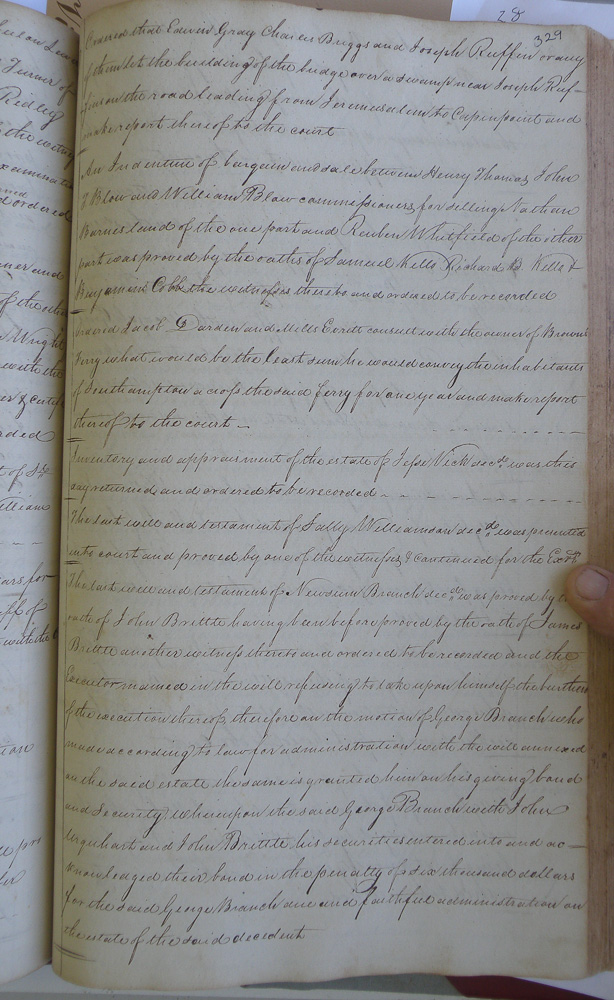 28
329
Ordered that Edwin Gray Charles Briggs and Joseph Ruffin or any
of them let the building of the bridge over a swamp near Joseph Ruf-
fins on the road leading from Jerusalem to Capinpoint and
make report thereof to the court
An Indenture of bargain and sale between Henry Thomas John
T Blow and William Blow commissioners for selling Nathan
Barnes land of the one part and Reuben Whitfield of the other
part was proved by the oaths of Samuel Kello Richard B. Kello &
Benjamin Cobb the witnesses thereto and ordered to be recorded
Ordered Jacob Darden and Mills Everitt consult with the owner of Browns
Ferry what would be the least sum he would convey the inhabitants
of Southampton across the said ferry for one year and make report
thereof to the court
Inventory and appraisment of the estate of Jesse Vick decd. was this
day returned and ordered to be recorded
The last will and testament of Sally Williamson decd. was presented
into court and proved by one of the witnesses & continued for the Exors
The last will and testament of Newsum Branch decd. was proved by the
oath of John Brittle having been before proved by the oath of James
Brittle another witness thereto and ordered to be recorded and the
Executor named in the will refusing to take upon himself the burthen
of the execution thereof, therefore on the motion of George Branch who
made according to law for administration with the will annexed
on the said estate the same is granted him on his giving bond
and security whereupon the said George Branch with John
Urquhart and John Brittle his securities entered into and ac-
knowledged their bond in the penalty of six thousand dollars
for the said George Branch due and faithful administration on
the estate of the said decedent